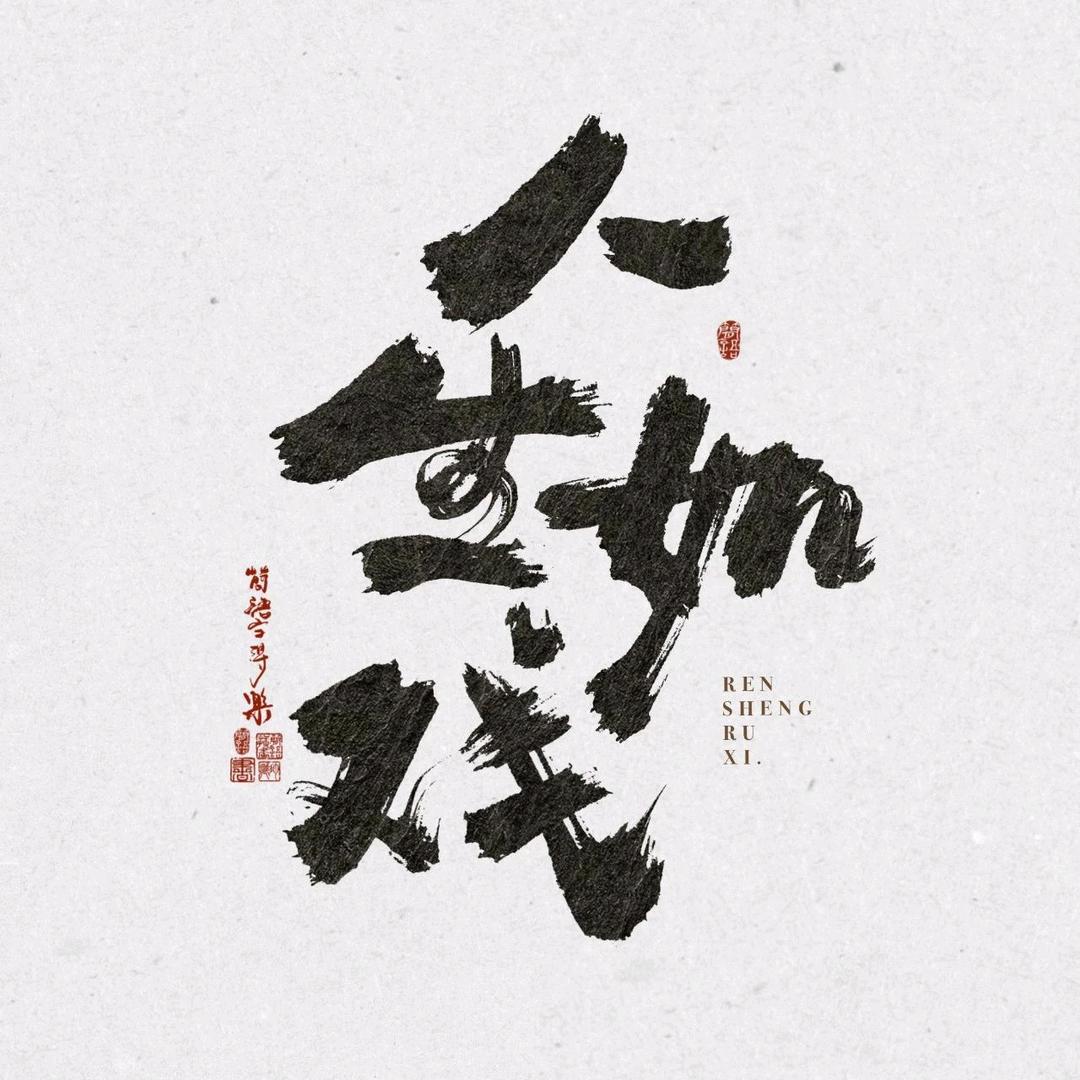 人
生
如
戏
REN
SHENG
RU
XI.